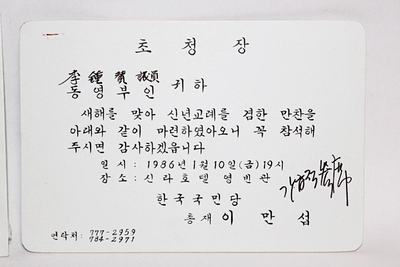 초 청 장
李鍾贊 議員
동 영 부 인 귀 하
새해를 맞아 신년교례를 겸한 만찬을
아래와 같이 마련하였아오니 꼭 참석해
주시면 감사하겠읍니다
일 시 : 1986年 1月 10日(금) 19시
장 소 : 신 라 호 텔 영 빈 관
한 국 국 민 당
총재 이 만 섭
연락처: 777-2959
784-2971